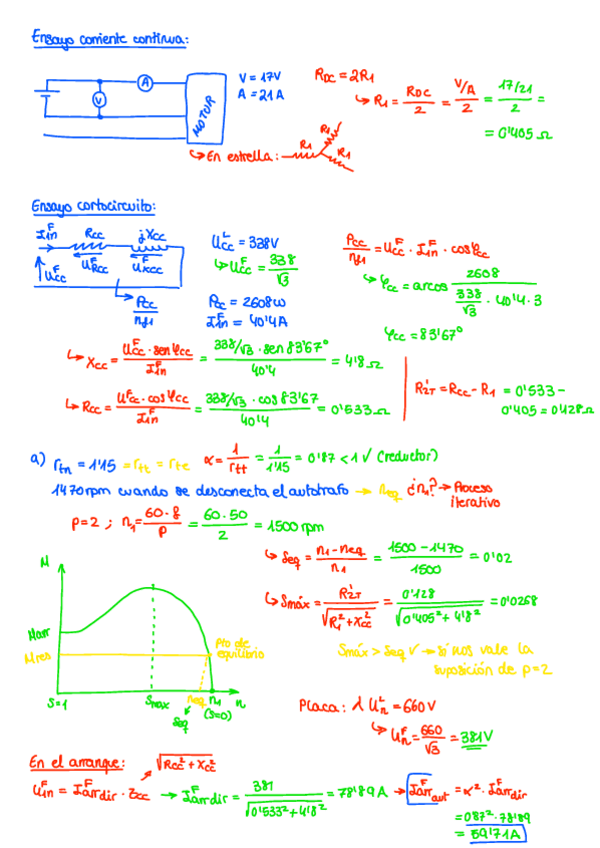 Ensayo corriente continua:
V = 17V
A = 21A
A
V
MOTOR
R_DC = 2R₁
↳ R₁ = R_DC/2 = (V/A)/2 = (17/21)/2 =
= 0'405 Ω
↳ En estrella: R₁ R₁ R₁
Ensayo cortocircuito:
I₁ₙ^F Rcc jXcc
U_cc^F U_Rcc^F U_Xcc^F
Pcc/m_f1
U_cc^L = 338V
↳ U_cc^F = 338/√3
Pcc = 2608W
I₁ₙ^F = 40'4A
Pcc/m_f1 = U_cc^F · I₁ₙ^F · cosφcc
↳ φcc = arcos 2608/(338/√3 · 40'4 · 3)
φcc = 83'67°
↳ Xcc = U_cc^F · senφcc / I₁ₙ^F = 338/√3 · sen 83'67° / 40'4 = 4'8 Ω
↳ Rcc = U_cc^F · cosφcc / I₁ₙ^F = 338/√3 · cos 83'67 / 40'4 = 0'533 Ω
R'₂T = Rcc − R₁ = 0'533 −
0'405 = 0'128 Ω
a) r_tn = 1'15 = r_tt = r_te α = 1/r_tt = 1/1'15 = 0'87 < 1 ✓ (reductor)
1470 rpm cuando se desconecta el autotrafo → n_eq ¿n₁? → Proceso
iterativo
P=2 ; n₁ = 60·f/P = 60·50/2 = 1500 rpm
↳ S_eq = (n₁ − n_eq)/n₁ = (1500 − 1470)/1500 = 0'02
↳ Smáx = R'₂T/√(R₁² + Xcc²) = 0'128/√(0'405² + 4'8²) = 0'0268
Smáx > Seq ✓ → sí nos vale la
suposición de p=2
M
Marr
Mres
Pto de
equilibrio
S=1 Smax neq n₁ n
Seq (S=0)
Placa: λ U_n^L = 660V
↳ U_n^F = 660/√3 = 381V
En el arranque: √(Rcc² + Xcc²)
U₁ₙ^F = I_arrdir^F · Zcc → I_arrdir^F = 381/√(0'533² + 4'8²) = 78'89A → I_arr aut^F = α² · I_arrdir^F
= 0'87² · 78'89
= 59'71A